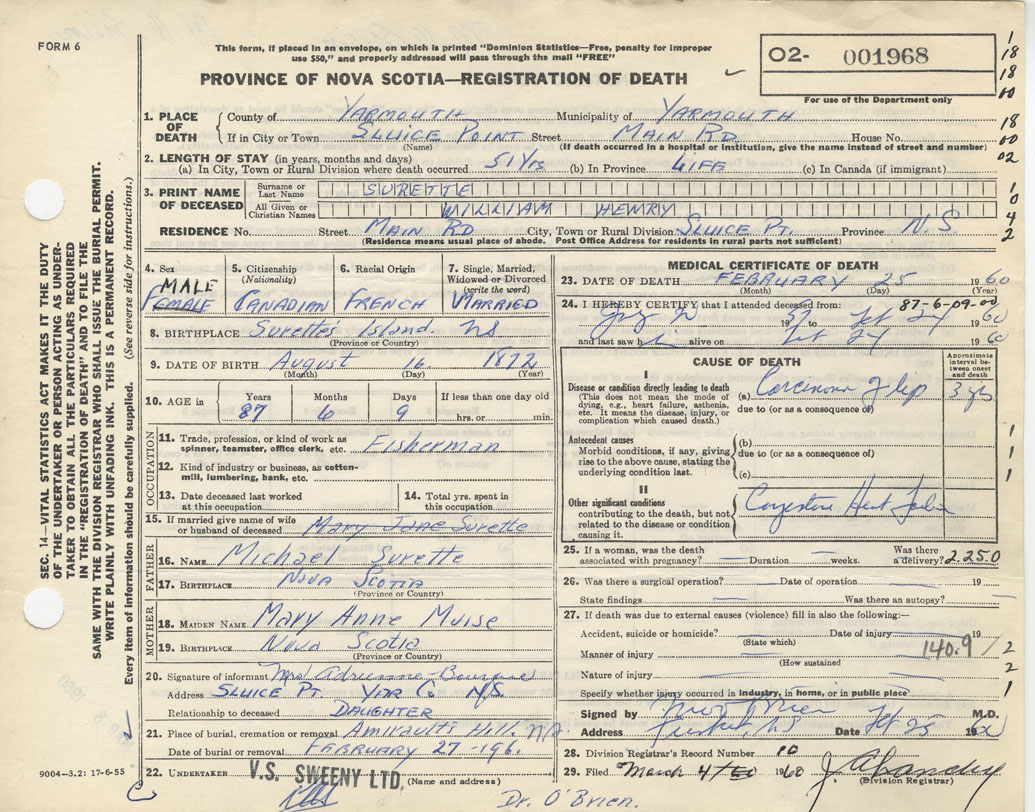 FORM 6
This form, if placed in an envelope, on which is printed "Dominion Statistics—Free, penalty for improper
use $50," and properly addressed will pass through the mail "FREE"
PROVINCE OF NOVA SCOTIA—REGISTRATION OF DEATH
O2- 001968
For use of the Department only
1 18 18 00
18 00 02
1 0 4 2
1. PLACE OF DEATH
County of YARMOUTH Municipality of YARMOUTH
If in City or Town SLUICE POINT Street MAIN RD House No.
(Name) (If death occurred in a hospital or institution, give the name instead of street and number)
2. LENGTH OF STAY (in years, months and days)
(a) In City, Town or Rural Division where death occurred 51 Yrs (b) In Province LIFE (c) In Canada (if immigrant)
3. PRINT NAME OF DECEASED
Surname or Last Name SURETTE
All Given or Christian Names WILLIAM HENRY
RESIDENCE No. Street MAIN RD City, Town or Rural Division SLUICE PT. Province N.S.
(Residence means usual place of abode. Post Office Address for residents in rural parts not sufficient)
4. Sex MALE FEMALE
5. Citizenship (Nationality) CANADIAN
6. Racial Origin FRENCH
7. Single, Married, Widowed or Divorced (write the word) MARRIED
8. BIRTHPLACE Surette's Island, NS
(Province or Country)
9. DATE OF BIRTH August 16 1872
(Month) (Day) (Year)
10. AGE in Years 87 Months 6 Days 9 If less than one day old hrs. or min.
OCCUPATION
11. Trade, profession, or kind of work as spinner, teamster, office clerk, etc. Fisherman
12. Kind of industry or business, as cotton-mill, lumbering, bank, etc.
13. Date deceased last worked at this occupation
14. Total yrs. spent in this occupation
15. If married give name of wife or husband of deceased Mary Jane Surette
FATHER
16. NAME Michael Surette
17. BIRTHPLACE NOVA SCOTIA
(Province or Country)
MOTHER
18. MAIDEN NAME Mary Anne Muise
19. BIRTHPLACE Nova Scotia
(Province or Country)
20. Signature of informant Mrs Adrienne Bourque
Address SLUICE PT. YAR Co N/S
Relationship to deceased DAUGHTER
21. Place of burial, cremation or removal Amirault's Hill, N.S.
Date of burial or removal FEBRUARY 27 - 196
22. UNDERTAKER V.S. SWEENY LTD, (Name and address)
9004—3.2: 17-6-55
MEDICAL CERTIFICATE OF DEATH
23. DATE OF DEATH FEBRUARY 25 1960
(Month) (Day) (Year)
24. I HEREBY CERTIFY that I attended deceased from: 87-6-09-00
19 57 to Feb 24 1960
and last saw him alive on Feb 24 1960
CAUSE OF DEATH
Approximate interval between onset and death
I
Disease or condition directly leading to death (a) Carcinoma of lip 3 yrs
(This does not mean the mode of dying, e.g., heart failure, asthenia, etc. It means the disease, injury, or complication which caused death.)
due to (or as a consequence of)
Antecedent causes (b)
Morbid conditions, if any, giving rise to the above cause, stating the underlying condition last.
due to (or as a consequence of)
(c)
1 1 1
II
Other significant conditions contributing to the death, but not related to the disease or condition causing it.
Congestive Heart Failure
25. If a woman, was the death associated with pregnancy? Duration weeks. Was there a delivery? 2.250
26. Was there a surgical operation? Date of operation 19
State findings Was there an autopsy?
27. If death was due to external causes (violence) fill in also the following:—
Accident, suicide or homicide? Date of injury 19
(State which)
140.9/
Manner of injury
(How sustained)
Nature of injury
Specify whether injury occurred in industry, in home, or in public place
2 2 1
Signed by M.D.
Address Tusket, NS Date Feb 25 1960
28. Division Registrar's Record Number 10
29. Filed March 4 1960
(Division Registrar)
Dr. O'Brien.
SEC. 14—VITAL STATISTICS ACT MAKES IT THE DUTY
OF THE UNDERTAKER OR PERSON ACTING AS UNDER-
TAKER TO OBTAIN ALL THE PARTICULARS REQUIRED
IN THE "REGISTRATION OF DEATH" AND TO FILE THE
SAME WITH THE DIVISION REGISTRAR WHO SHALL ISSUE THE BURIAL PERMIT.
WRITE PLAINLY WITH UNFADING INK. THIS IS A PERMANENT RECORD.
Every item of information should be carefully supplied. (See reverse side for instructions.)